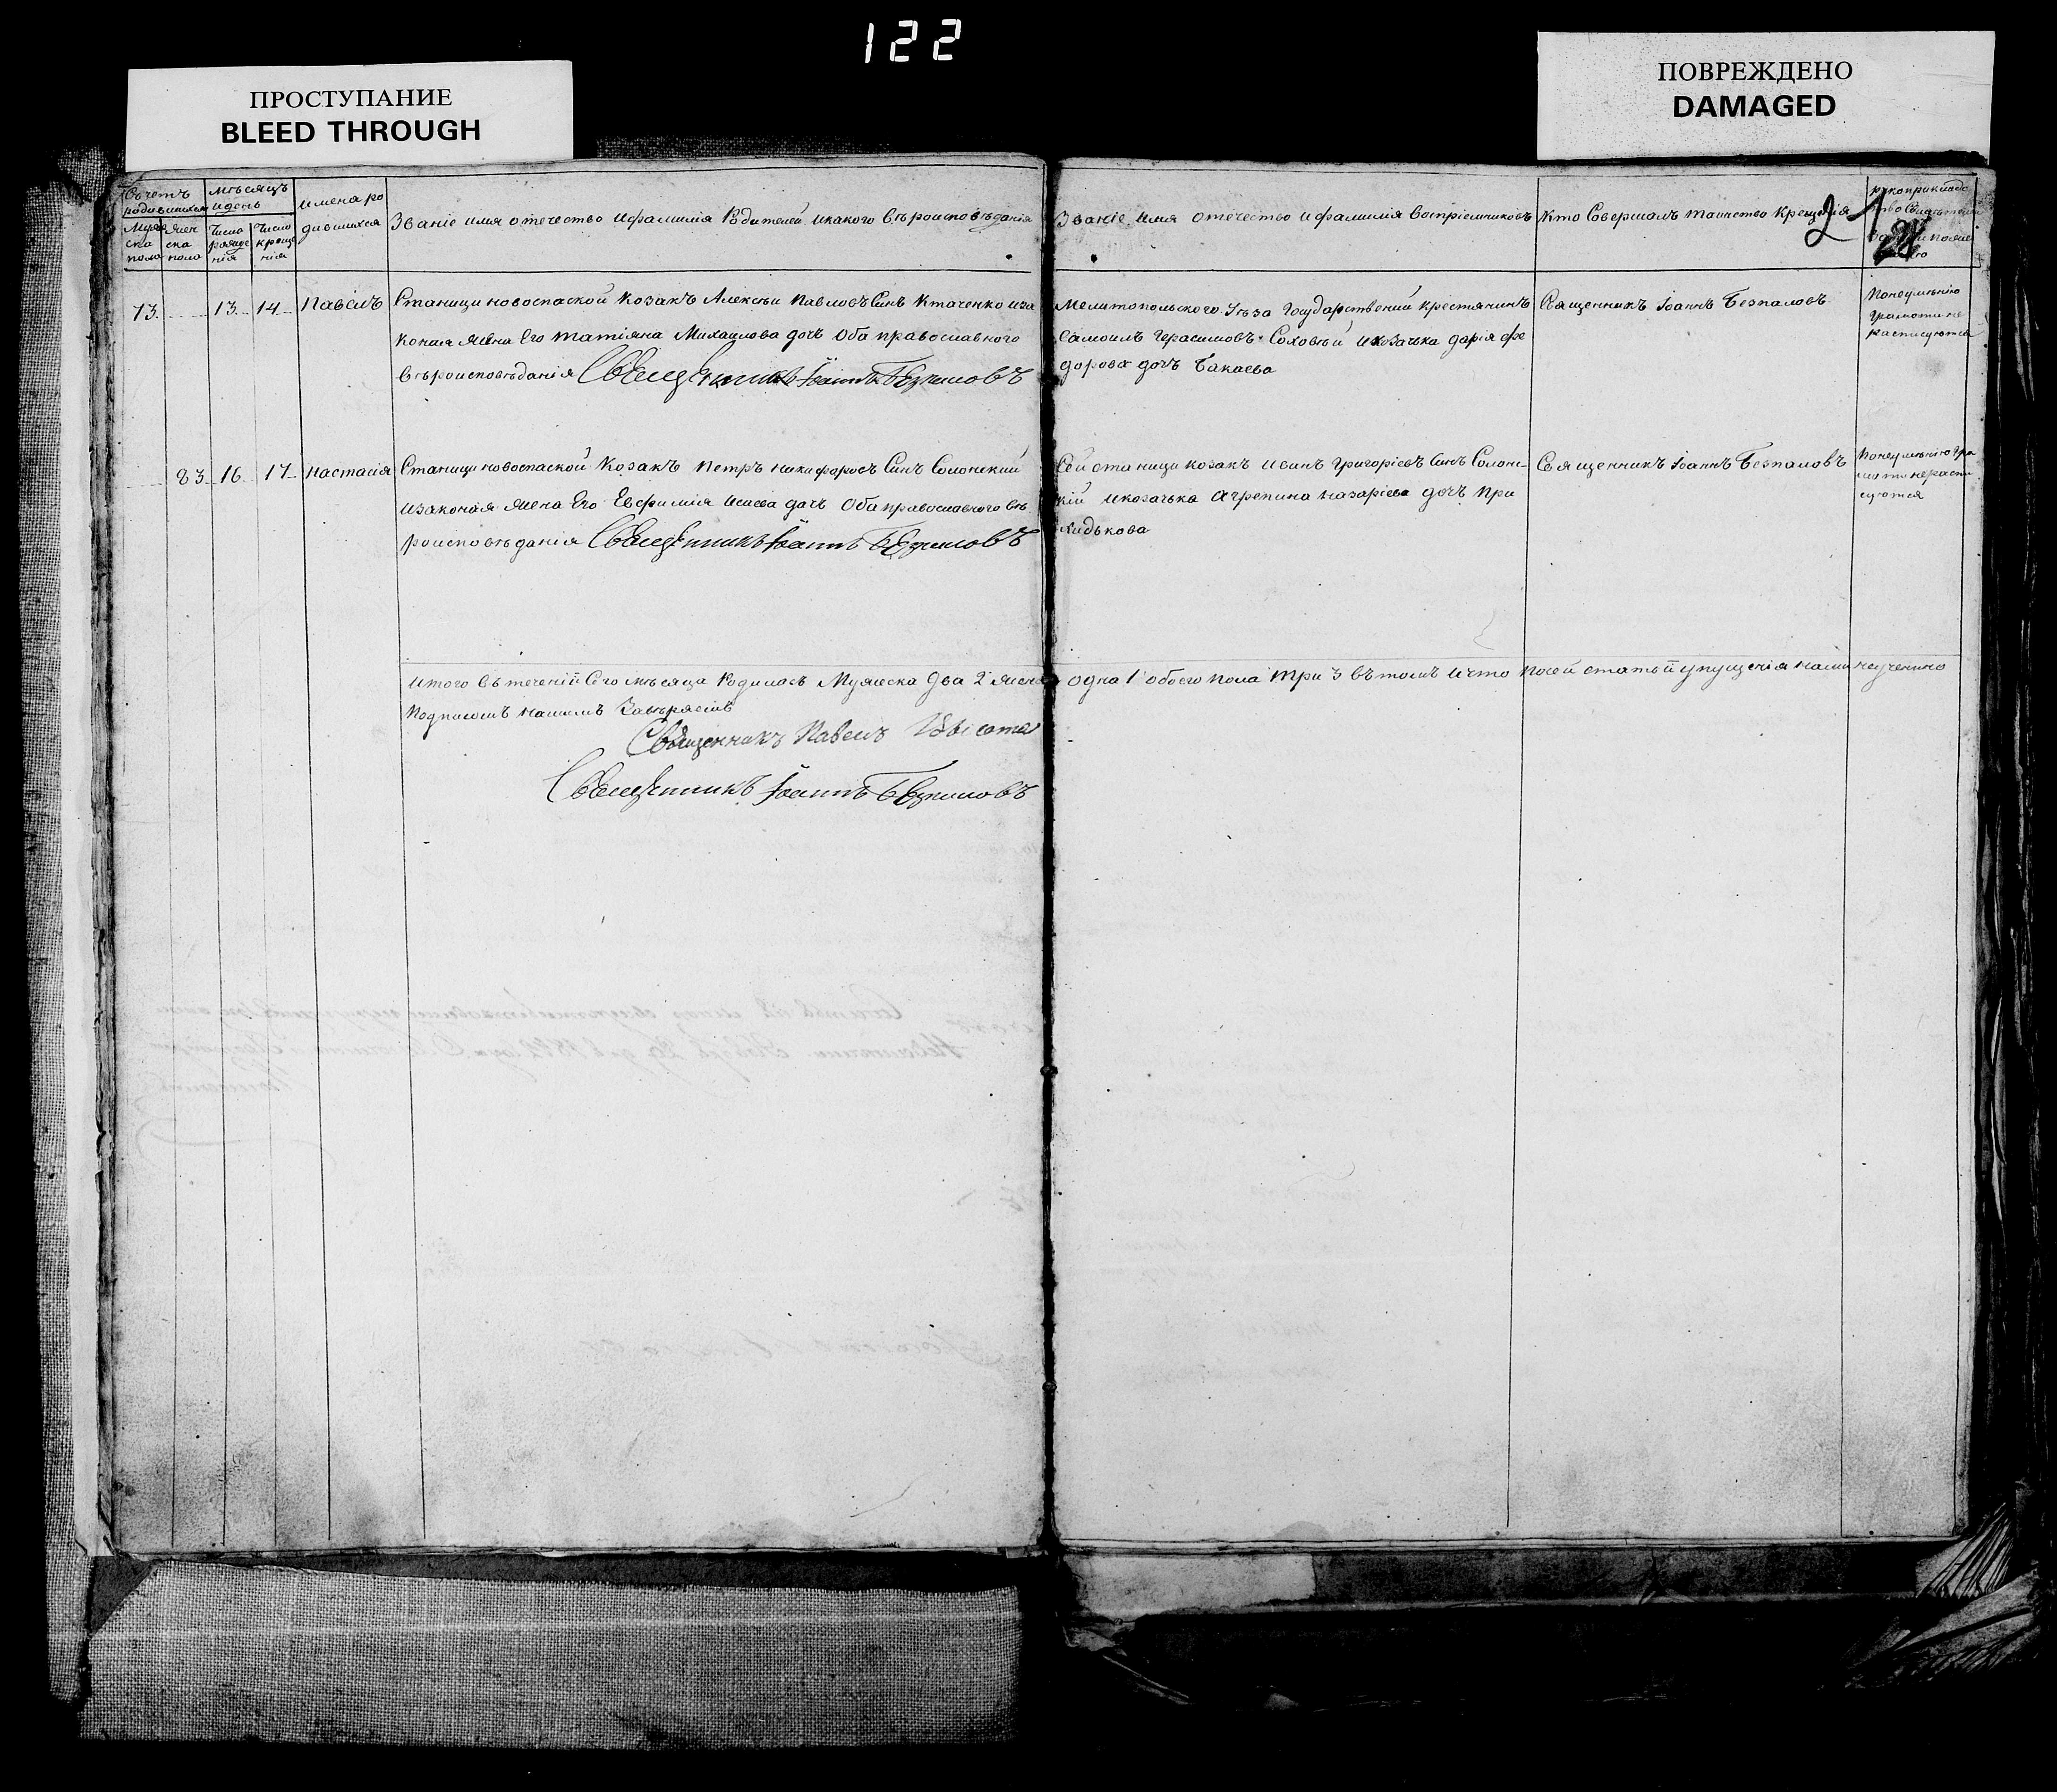 122
ПРОСТУПАНИЕ
BLEED THROUGH
ПОВРЕЖДЕНО
DAMAGED
Счетъ
родившихся
мѣсяцъ
и день
имена ро
дившихся
Муже
ска
пола
Жен
ска
пола
Число
рожде
нія
Число
креще
нія
Званіе имя отечество и фамилія Родителей и какого вѣроисповѣданія
Званіе Имя отечество и фамилія воспріемниковъ
Кто Совершалъ таинство Крещенія
21
73. 13. 14 Павелъ
Станици новоспаской Козакъ Алексѣи Павловъ Синъ Ктаченко иза
коная Жена Его Татіяна Михаилова дочъ Оба православного
вѣроисповѣданія Священникъ Іоаннъ Безпаловъ
Мелитополського Уѣзда Государственій Крестянинъ
Самоилъ Герасимовъ Соховѣй и козачька дарія фе
дорова дочъ Бакаева
Священникъ Іоаннъ Безпаловъ
Понеумѣнію
грамоти не
расписуются
83 16 17 Настасія
Станици новоспаской Козакъ Петръ никифоровъ Синъ Солонский
изаконая Жена Его Евфимія Исаева дочъ Оба православного вѣ
роисповѣданія Священникъ Іоаннъ Безпаловъ
Сей станици козакъ Иванъ Григоріевъ Синъ Солонс-
кій и козачька Агрепина Назаріева дочъ При
хидькова
Священникъ Іоаннъ Безпаловъ
Понеумѣнію Гра
моти нерасписуются
Итого Въ теченіи Сего мѣсяца Родилось Мужеска два 2 Женска одна 1 обоего пола три 3 въ томъ и что по сей статьи упущенія нами неученино
Подписомъ нашимъ Завѣряемъ
Священникъ Павелъ
Священникъ Іоаннъ Безпаловъ